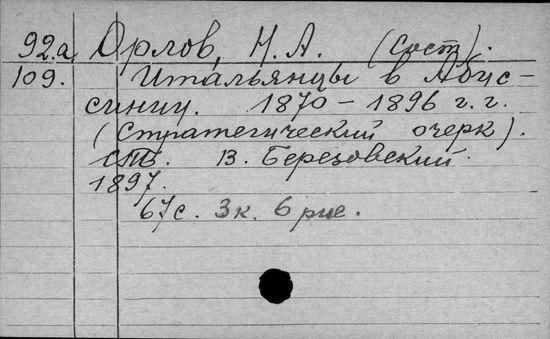 92.a Орлов, Н. А. (Сост).
109. Итальянцы в Абис-
синии. 1870 – 1896 г. г.
(Стратегический очерк).
СПБ. В. Березовский.
1897.
67 с. 3 к. 6 рис.